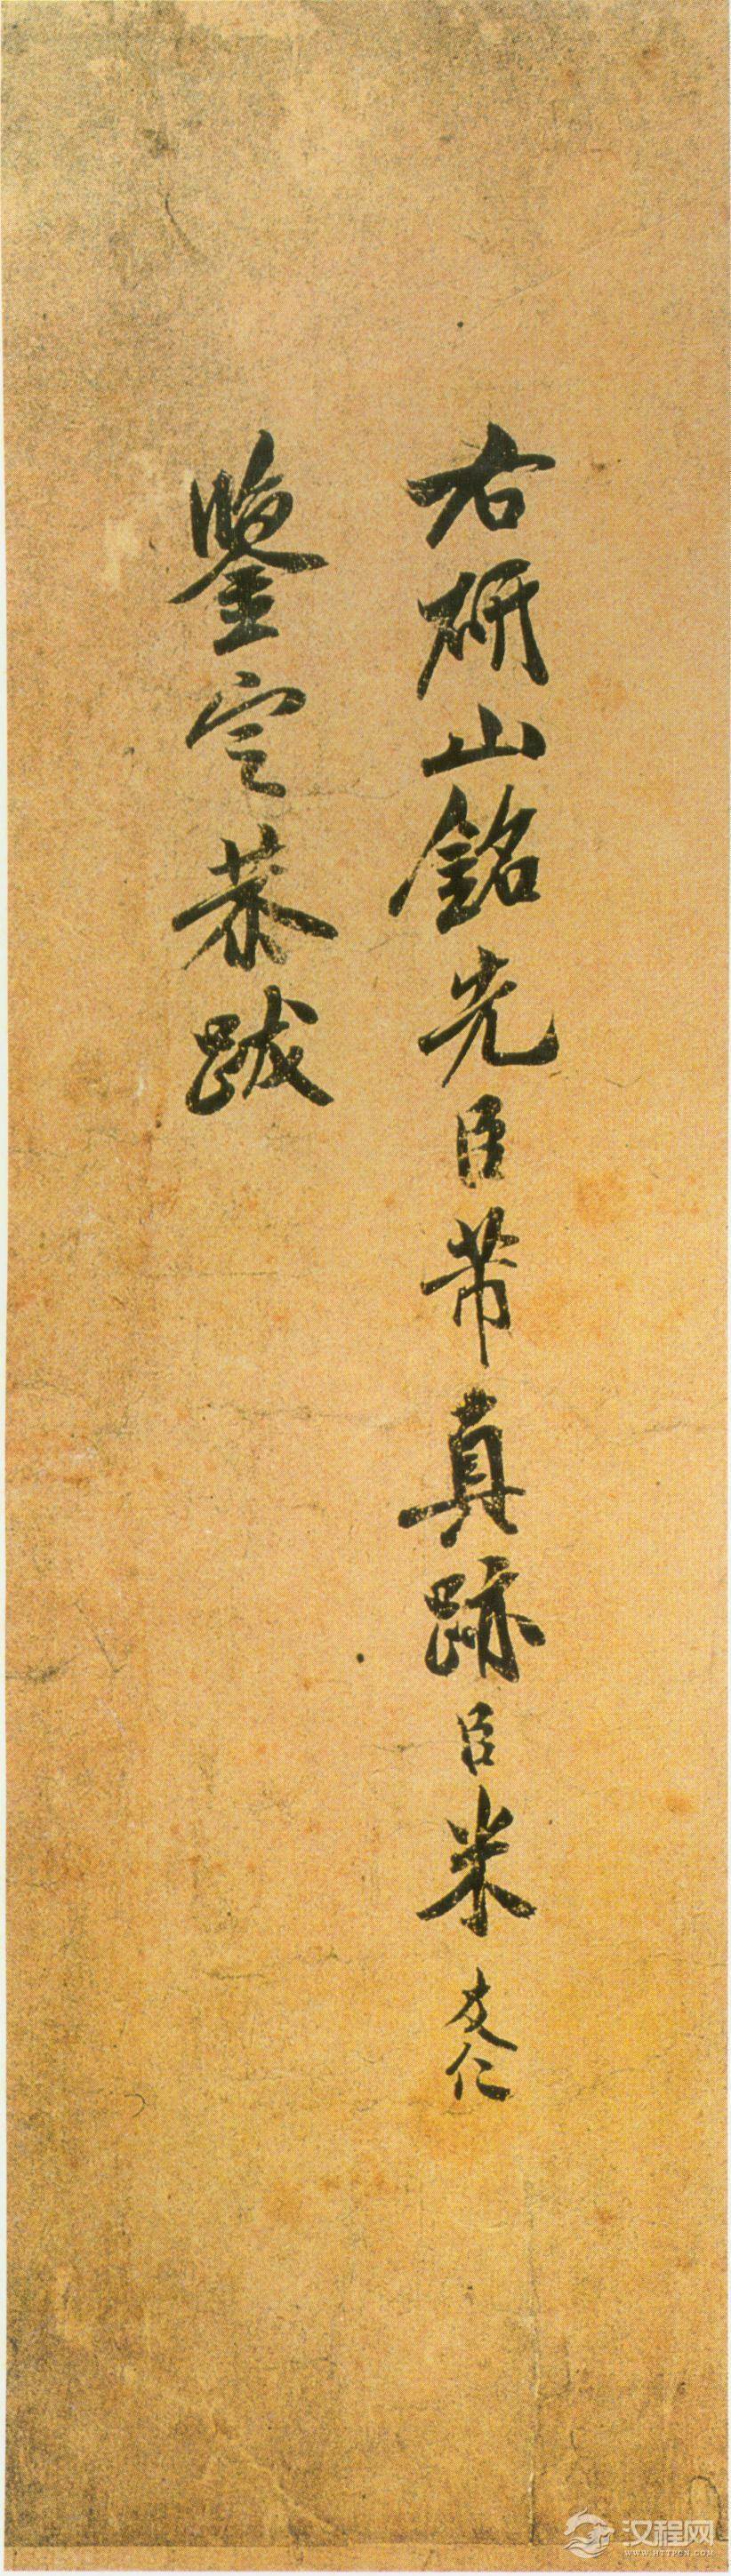 右研山銘先臣芾真跡臣米友仁
鑒定恭跋
汉程网
WWW.HTTPCN.COM